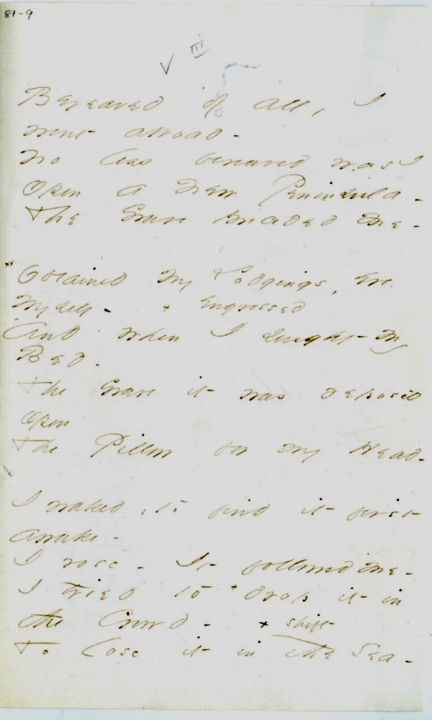 81-9
III
Bereaved of all, I
went abroad -
No less bereaved was I
Opon a New Peninsula -
The Grave preceded me -
Obtained my + Lodgings, ere
myself - + Engrossed
And when I sought my
Bed -
The Grave it was reposed
Opon
The Pillow for my Head -
I waked, to find it first
awake -
I rose - It followed me -
I tried to + drop it in
the Crowd - + shift
To lose it in the Sea -